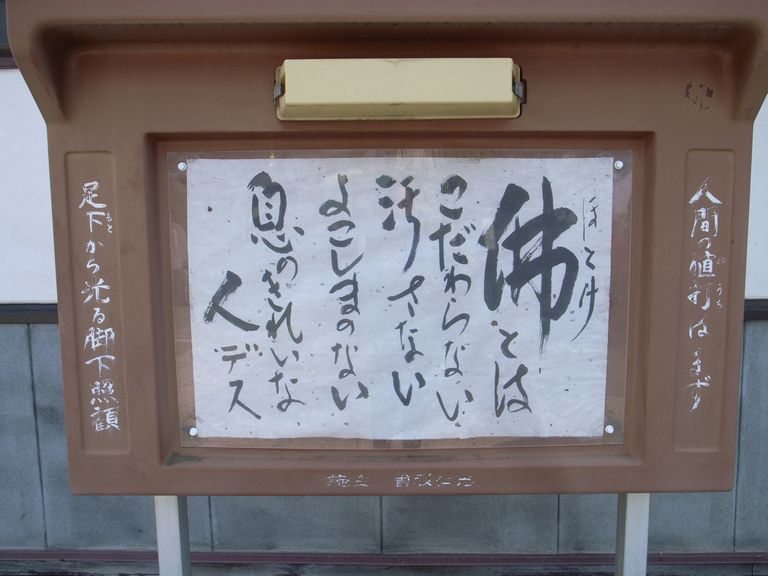 人間の値打は
ほとけ
佛とは
こだわらない
汚さない
よこしまのない
息のきれいな
人デス
足下から光る脚下照顧
施主